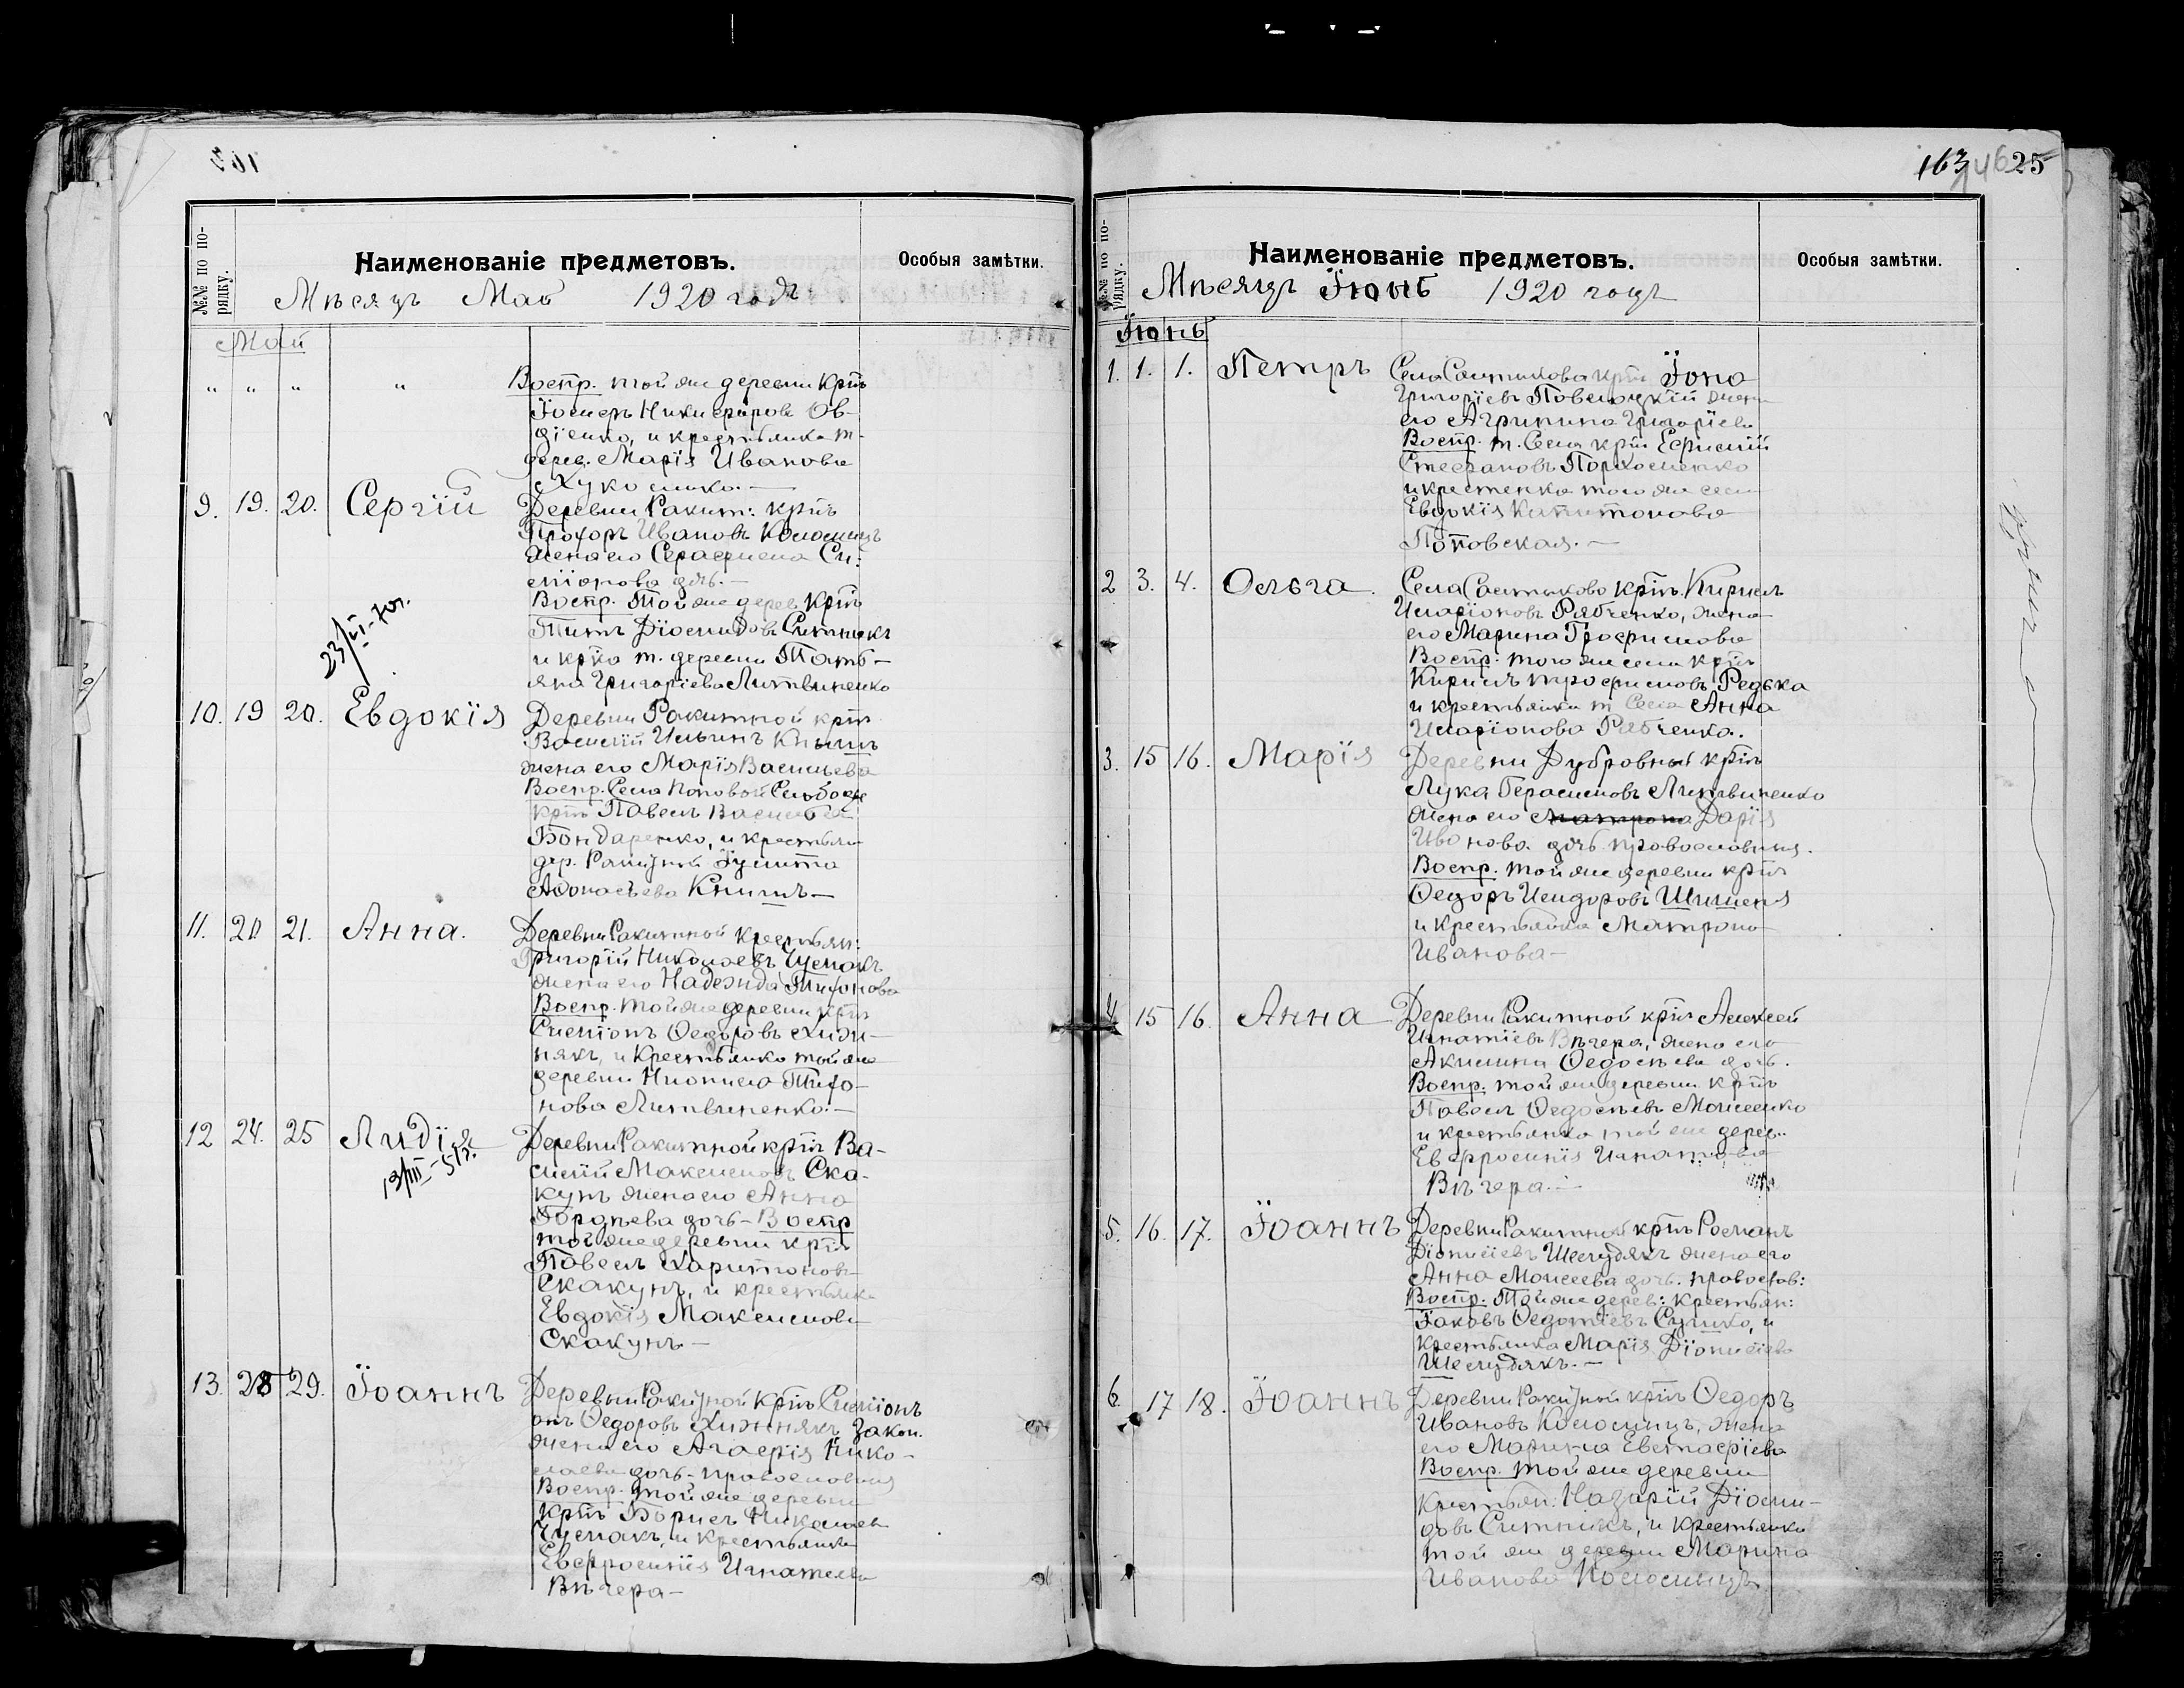 №№ по по-
рядку.
Наименованіе предметовъ.
Особыя замѣтки.
Мѣсяцъ Май 1920 годъ
Май
" " " " Воспр. той же деревни крнъ
Іосифъ Никифоровъ Ов-
діенко, и крестьянка т.
дерев. Марія Иванова
9. 19. 20. Сергій Деревни Ракит: крнъ
Прохоръ Ивановъ Коломіецъ
жена его Серафима Си-
міонова дочь.—
Воспр. Той же дерев. крнъ
Титъ Діомидовъ Ситникъ
и крка т. деревни Тать-
яна Григоріева Литвиненко
23/VI-70г.
10. 19 20. Евдокія Деревни Ракитной крнъ
Василій Ильинъ Книшъ
жена его Марія Васильева
Воспр. Села Поповой Слободы
крнъ Павелъ Васильевъ
Бондаренко, и крестьян
дер. Ракитной Іулитта
Афонасьева Книшъ—
11. 20 21. Анна. Деревни Ракитной крестьян:
Григорій Николаевъ Чумакъ
жена его Надежда Тихонова
Воспр. той же деревни крнъ
Симіонъ Ѳедоровъ Хиж-
някъ, и крестьянка той же
деревни Тихо-
нова Литвиненко.—
12 24. 25 Лидія Деревни Ракитной крнъ Ва-
силій Максимовъ Ска-
кунъ жена его Анна
Гордѣева дочь— Воспр
той же деревни крнъ
Павелъ Харитоновъ
Скакунъ, и крестьянка
Евдокія Максимова
Скакунъ—
13. 28 29. Іоаннъ Деревни Ракитной крнъ Симіонъ
Ѳедоровъ Хижнякъ закон.
жена его Агафія Нико-
лаева дочь— православныя
Воспр. той же деревни
крнъ Борисъ Николаевъ
Чумакъ, и крестьянка
Евфросинія Игнатьева
Вѣчера—
163 25
№№ по по-
рядку.
Наименованіе предметовъ.
Особыя замѣтки.
Мѣсяцъ Іюнь 1920 годъ
Іюнь
1. 1. 1. Петръ Села Салтыкова крнъ Іона
Григоріевъ Повелоцкій жена
его Агрипина Григоріева
Воспр. т. Села крнъ Ефимій
Стефановъ Пархоменко
и крестенка того же села
Евдокія Капитонова
Поповская.—
2 3. 4. Ольга. Села Салтыкова крнъ Кирилъ
Иларіоновъ Рябченко, жена
его Марина Трофимова
Воспр. того же села крнъ
Кирилъ трофимовъ Редька
и крестьянка т Села Анна
Иларіонова Рябченко.
3. 15 16. Марія Деревни Дубровной крнъ
Лука Герасимовъ Литвиненко
жена его Матрона Дарія
Иванова дочь православныя.
Воспр. той же деревни крнъ
Ѳедоръ Исидоровъ Шишеня
и крестьянка Матрона
Иванова—
4 15 16. Анна Деревни Ракитной крнъ Алексей
Игнатіевъ Вѣчера, жена его
Акилина Ѳедосѣева дочь.
Воспр. той же деревни крнъ
Павелъ Ѳедосѣевъ Моисеенко
и крестьянка той же дерев..
Евфросинія Игнатова
Вѣчера.—
5. 16. 17. Іоаннъ Деревни Ракитной крнъ Романъ
Діонисіевъ Шелудякъ жена его
Анна Моисеева дочь. правослов:
Воспр. Той же дерев: крестьян:
Іаковъ Ѳедотіевъ Сушко, и
крестьянка Марія Діонисіева
Шелудякъ.—
6. 17 18. Іоаннъ Деревни Ракитной крнъ Ѳедоръ
Ивановъ Коломіецъ, жена
его Марина Евстафіева
Воспр. той же деревни
крестьян: Назарій Діоми-
довъ Ситникъ, и крестьянка
той же деревни Марина
Иванова Коломіецъ.